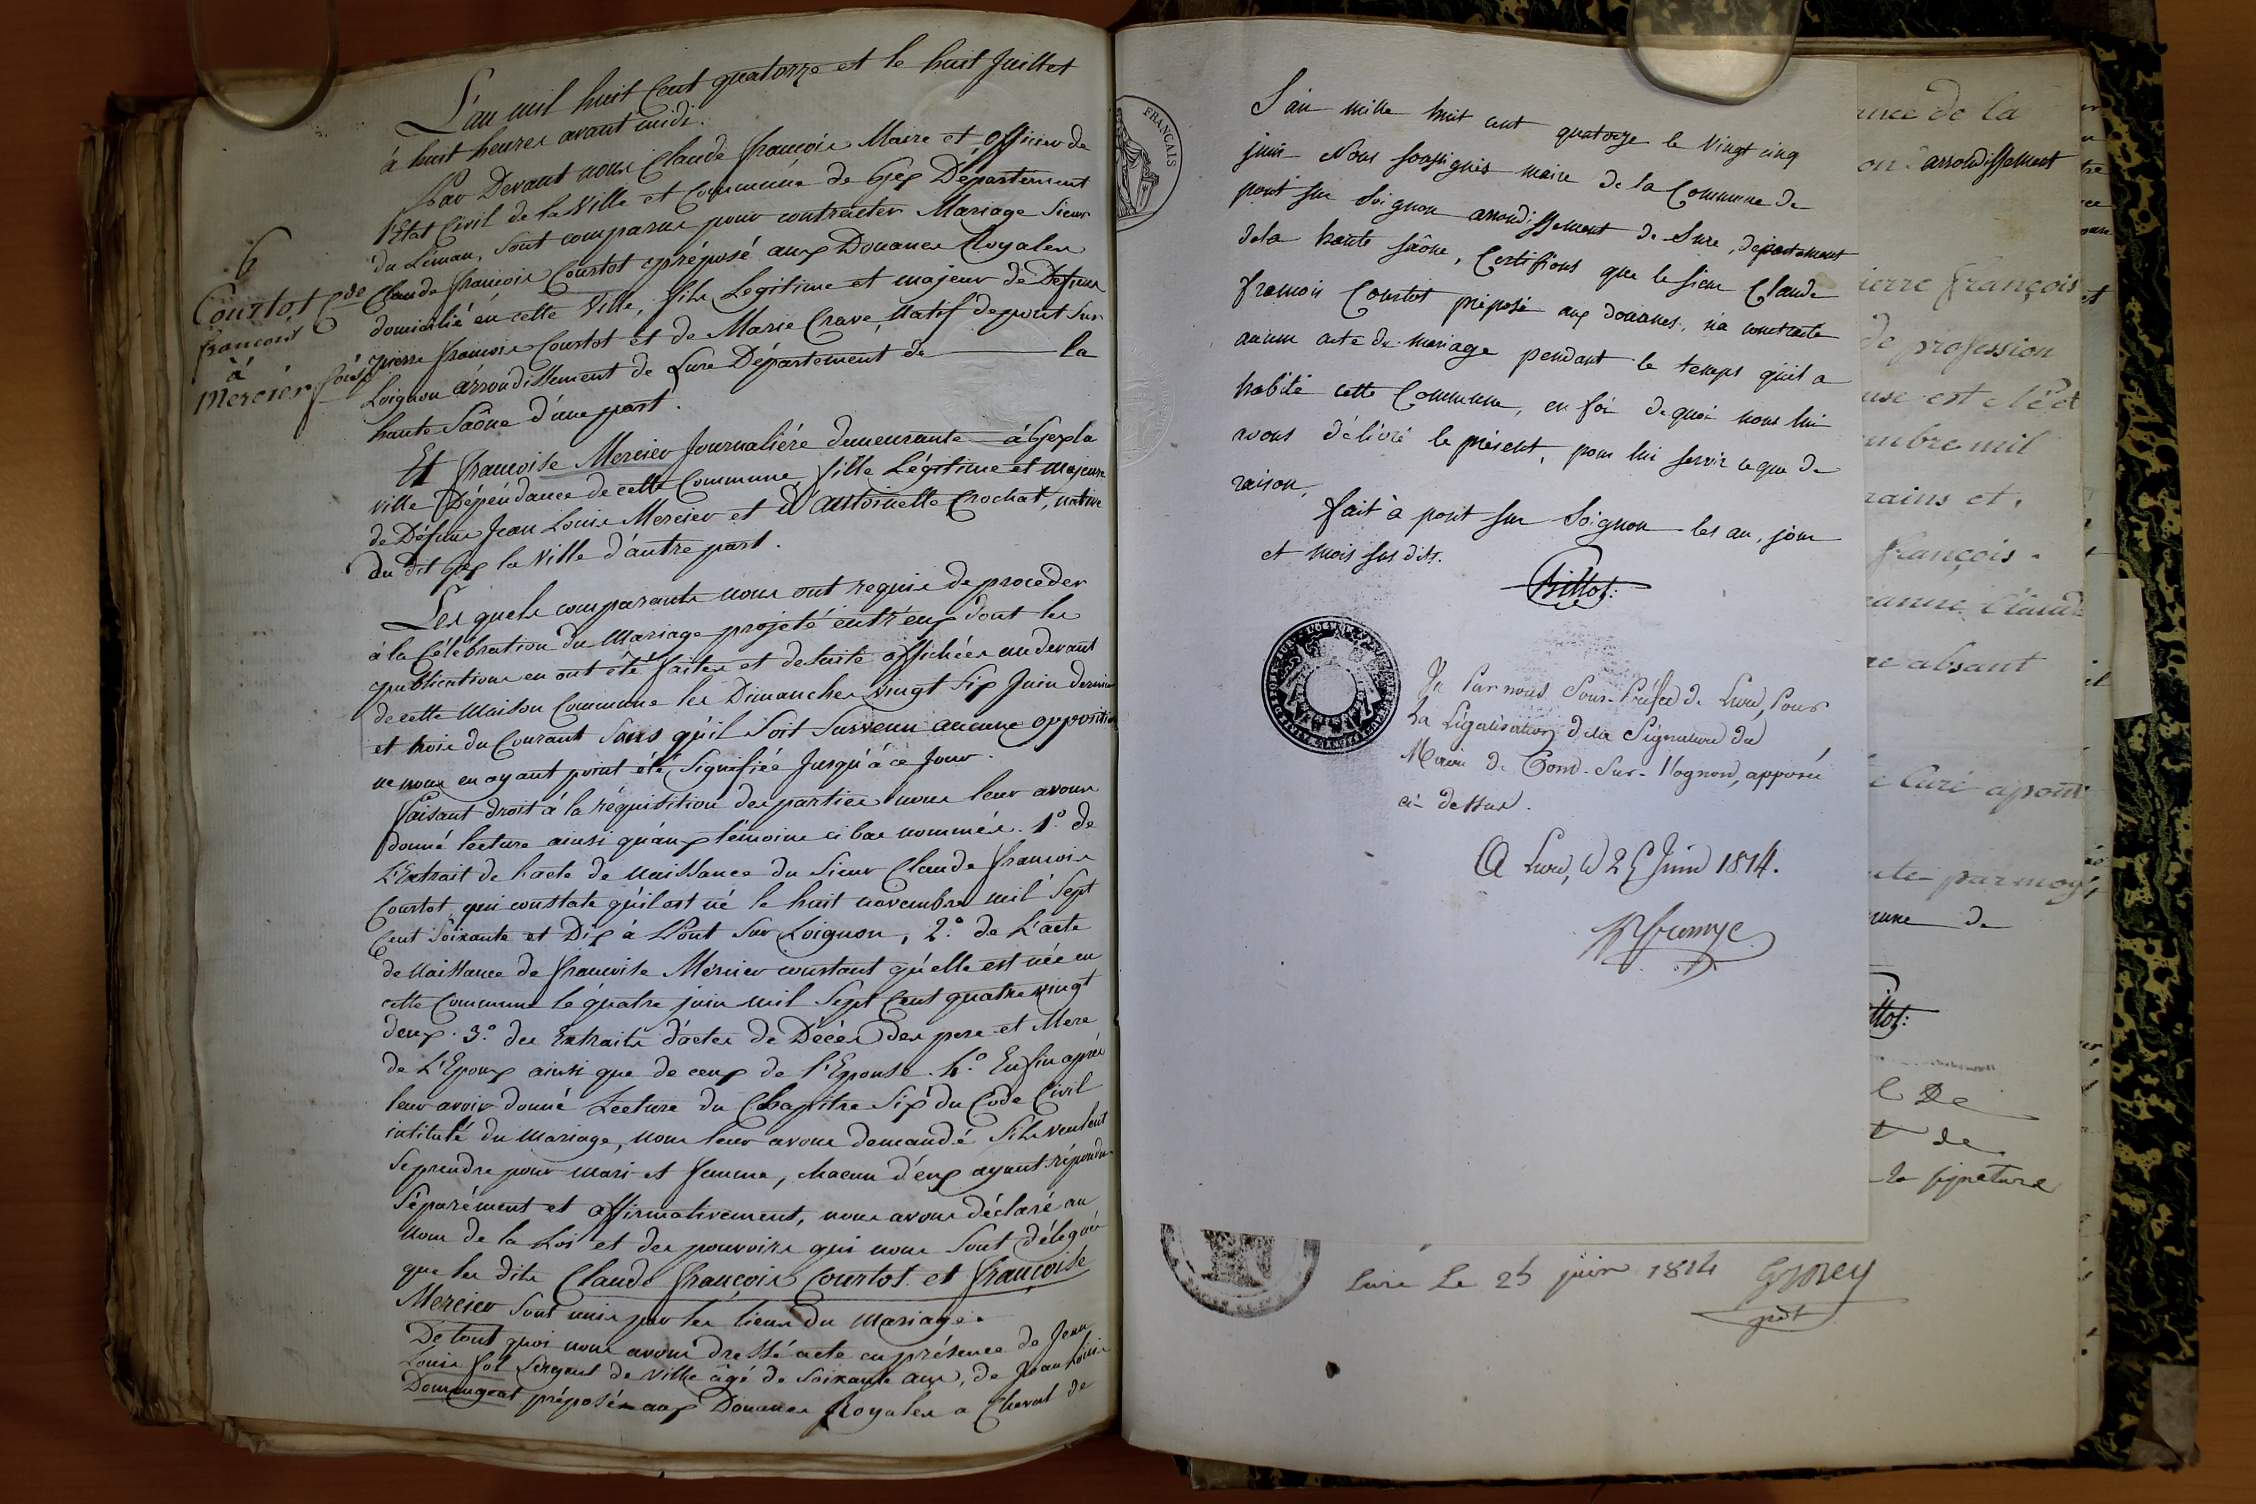 L'an mil huit Cent quatorze et le huit Juillet
à huit heures avant midi.
Par Devant nous Claude françois Maire et officier de
l'Etat Civil de la Ville et Commune de Gex Département
du Léman, Sont comparus pour contracter Mariage Sieur
Claude françois Courtot préposé aux Douanes Royales
domicilié en cette Ville, fils Légitime et majeur de Défunt
pierre françois Courtot et de Marie Crave, Natif de pont Sur
Loignon arrondissement de Lure Département de la
haute Saône d'une part.
6
Courtot Cde
françois
à
Mercier fse
Et françoise Mercier Journalière demeurante à Gex la
ville Dépendance de cette Commune, fille Légitime et majeure
de Défunt Jean Louis Mercier et d'Antoinette Crochat, native
du dit Gex la Ville d'autre part.
Les quels comparants nous ont requis de procéder
à la Célébration du Mariage projeté entr'eux dont les
publications en ont été faites et de suite affichées au devant
de cette Maison Commune les Dimanches vingt Six Juin dernier
et trois du Courant Sans qu'il Soit Survenu aucune opposition
ne nous en ayant point été Signifiée Jusqu'à ce Jour.
faisant droit à la réquisition des parties nous leur avons
donné lecture ainsi qu'aux témoins ci bas nommés. 1º. de
L'Extrait de l'acte de Naissance du Sieur Claude françois
Courtot qui constate qu'il est né le huit novembre mil Sept
Cent Soixante et Dix à Pont Sur Loignon, 2º. de L'acte
de Naissance de françoise Mercier constant qu'elle est née en
cette Commune le quatre juin mil Sept Cent quatre vingt
deux. 3º. des Extraits d'actes de Décès des pere et Mere
de L'Epoux ainsi que de ceux de l'Epouse. 4º. Enfin après
leur avoir donné Lecture du Chapitre Six du Code Civil
intitulé du Mariage, nous leur avons demandé S'ils veulent
Se prendre pour mari et femme, chacun d'eux ayant répondu
Séparément et affirmativement, nous avons déclaré au
Nom de la Loi et des pouvoirs qui nous Sont délégués
que les dits Claude françois Courtot et françoise
Mercier Sont unis par les liens du Mariage.
De tout quoi nous avons dressé acte en présence de Jean
Louis fol Sergent de Ville âgé de Soixante ans, de Jean Louis
Domengeat préposé aux Douanes Royales a Cheval de
FRANÇAIS
L'an mille huit cent quatorze le vingt cinq
juin Nous soussignés maire de la Commune de
pont sur Loignon arrondissement de Lure, département
de la haute saône, Certifions que le sieur Claude
françois Courtot préposé aux douanes, n'a contracté
aucun acte de mariage pendant le temps qu'il a
habité cette Commune, en foi de quoi nous lui
avons délivré le présent, pour lui servir ce que de
raison,
fait à pont sur Loignon les an, jour
et mois sus dits.
Billot:
Vu Par nous Sous-Préfet de Lure, Pour
La Légalisation de la Signature du
Maire de Pont-Sur-l'Ognon, apposée
ci-dessus.
A Lure, le 25 Juin 1814.
Lure Le 25 juin 1814
de la
arrondissement
pierre françois
de profession
est
mil
et
françois
absent
Curé a pont
par moy
de
De
de
la signature